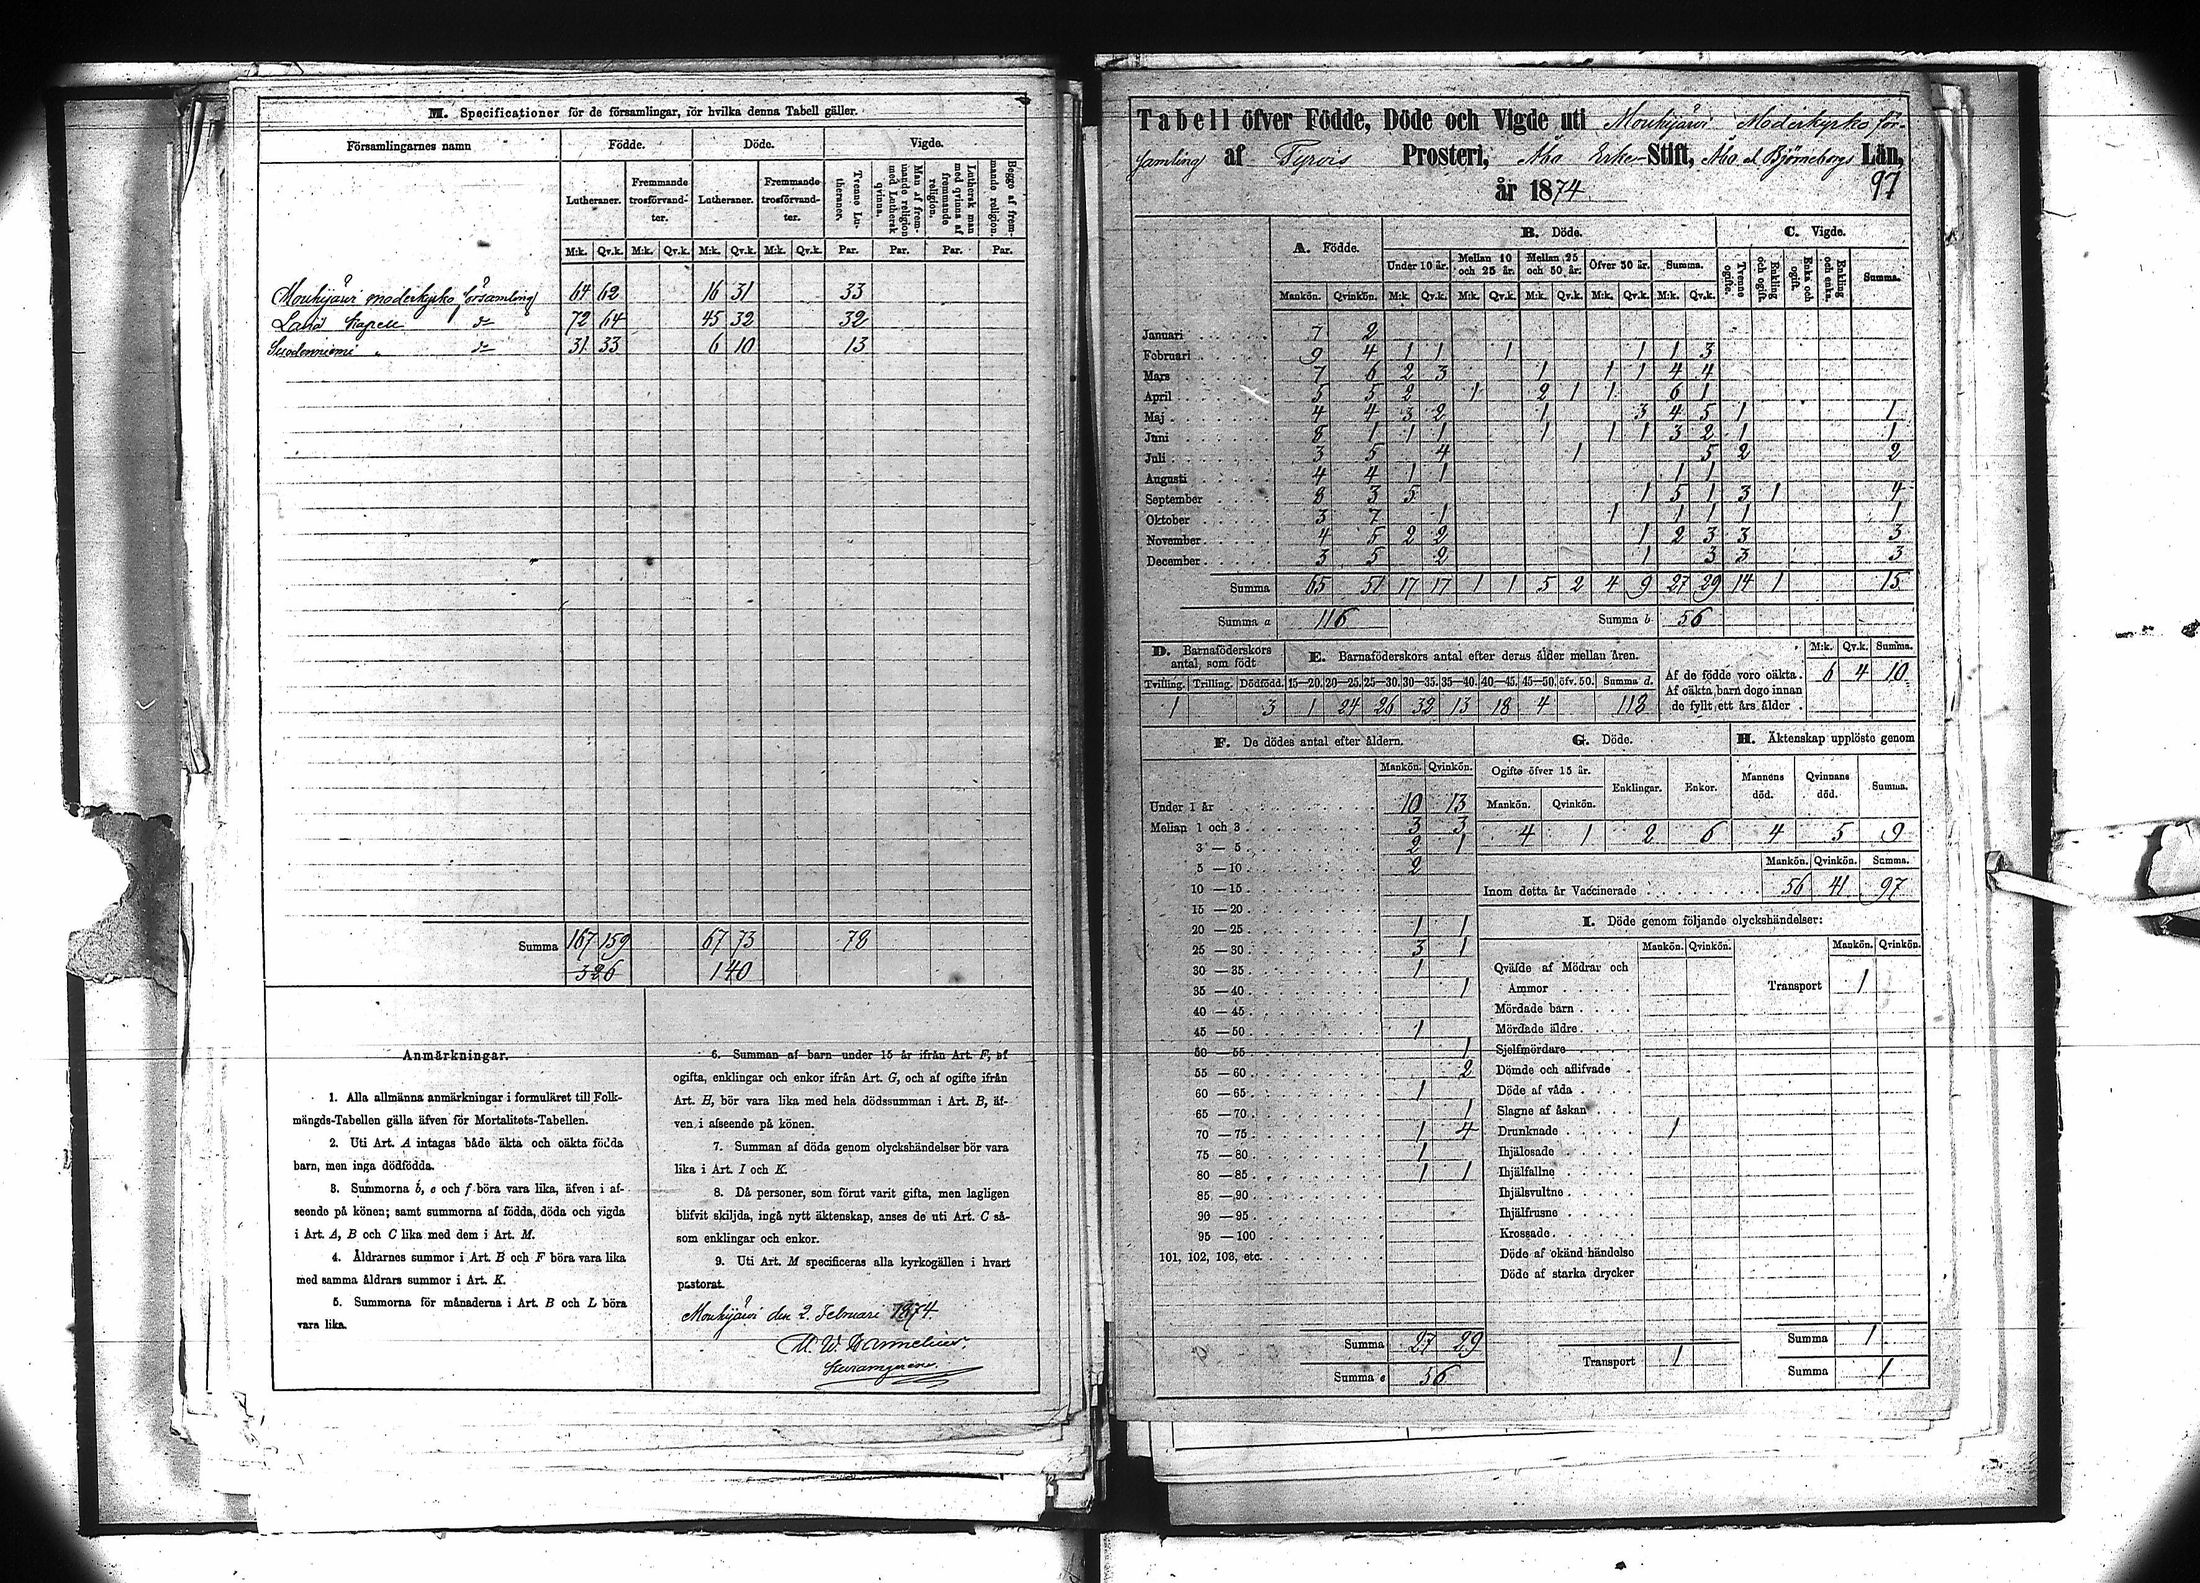 M. Specificationer för de församlingar, för hvilka denna Tabell gäller.
Församlingarnes namn Födde. Döde. Vigde.
Lutheraner. Fremmande trosförvandter. Lutheraner. Fremmande trosförvandter. Tvenne Lutheraner. Man af fremmande religion med Luthersk qvinna. Luthersk man med qvinna af fremmande religion. Begge af fremmande religion.
M:k. Qv.k. M:k. Qv.k. M:k. Qv.k. M:k. Qv.k. Par. Par. Par. Par.
Mouhijärvi moderkyrko församling 64 62 16 31 33
Lavia kapell do 72 64 45 32 32
Suodenniemi " do 31 33 6 10 13
Summa 167 159 67 73 78
326 140
Anmärkningar.
1. Alla allmänna anmärkningar i formuläret till Folk-
mängds-Tabellen gälla äfven för Mortalitets-Tabellen.
2. Uti Art. A intagas både äkta och oäkta födda
barn, men inga dödfödda.
3. Summorna b, e och f böra vara lika, äfven i af-
seende på könen; samt summorna af födda, döda och vigda
i Art. A, B och C lika med dem i Art. M.
4. Åldrarnes summor i Art. B och F böra vara lika
med samma åldrars summor i Art. K.
5. Summorna för månaderna i Art. B och L böra
vara lika.
6. Summan af barn under 15 år ifrån Art. F, af
ogifta, enklingar och enkor ifrån Art. G, och af ogifte ifrån
Art. H, bör vara lika med hela dödssumman i Art. B, äf-
ven i afseende på könen.
7. Summan af döda genom olyckshändelser bör vara
lika i Art. I och K.
8. Då personer, som förut varit gifta, men lagligen
blifvit skiljda, ingå nytt äktenskap, anses de uti Art. C så-
som enklingar och enkor.
9. Uti Art. M specificeras alla kyrkogällen i hvart
pastorat.
Mouhijärvi den 2 Februari 1874.
Tabell öfver Födde, Döde och Vigde uti Mouhijärvi Moderkyrko för-
samling af Tyrvis Prosteri, Åbo Erke- Stift, Åbo et Björneborgs Län,
år 1874 97
A. Födde. B. Döde. C. Vigde.
Under 10 år. Mellan 10 och 25 år. Mellan 25 och 50 år. Öfver 50 år. Summa. Tvenne ogifte. Enkling och ogift. Enka och ogift. Enkling och enka. Summa.
Mankön. Qvinkön. M:k. Qv.k. M:k. Qv.k. M:k. Qv.k. M:k. Qv.k. M:k. Qv.k.
Januari 7 2
Februari 9 4 1 1 1 1 1 3
Mars 7 6 2 3 1 1 1 4 4
April 5 5 2 1 2 1 1 6 1
Maj 4 4 3 2 1 3 4 5 1 1
Juni 8 1 1 1 1 1 1 3 2 1 1
Juli 3 5 4 1 5 2 2
Augusti 4 4 1 1 1 1
September 8 3 5 1 5 1 3 1 4
Oktober 3 7 1 1 1 1 1 1
November 4 5 2 2 1 2 3 3 3
December 3 5 2 1 3 3 3
Summa 65 51 17 17 1 1 5 2 4 9 27 29 14 1 15
Summa a 116 Summa b 56
D. Barnaföderskors antal, som födt
Tvilling. Trilling. Dödfödd.
1 3
E. Barnaföderskors antal efter deras ålder mellan åren.
15—20. 20—25. 25—30. 30—35. 35—40. 40—45. 45—50. öfv. 50. Summa d.
1 24 26 32 13 18 4 118
M:k. Qv.k. Summa.
Af de födde voro oäkta. 6 4 10
Af oäkta barn dogo innan
de fyllt ett års ålder.
F. De dödes antal efter åldern.
Mankön. Qvinkön.
Under 1 år 10 13
Mellan 1 och 3 3 3
3 — 5 2 1
5 — 10 2
10 — 15
15 — 20
20 — 25 1 1
25 — 30 3 1
30 — 35 1
35 — 40 1
40 — 45
45 — 50 1
50 — 55 1
55 — 60 2
60 — 65 1
65 — 70 1
70 — 75 1 4
75 — 80 1
80 — 85 1 1
85 — 90
90 — 95
95 — 100
101, 102, 103, etc.
Summa 27 29
Summa e 56
G. Döde.
Ogifte öfver 15 år. Enklingar. Enkor.
Mankön. Qvinkön.
4 1 2 6
H. Äktenskap upplöste genom
Mannens död. Qvinnans död. Summa.
4 5 9
Mankön. Qvinkön. Summa.
Inom detta år Vaccinerade 56 41 97
I. Döde genom följande olyckshändelser:
Mankön. Qvinkön. Mankön. Qvinkön.
Qväfde af Mödrar och
Ammor
Transport 1
Mördade barn
Mördade äldre
Sjelfmördare
Dömde och aflifvade
Döde af våda
Slagne af åskan
Drunknade 1
Ihjälosade
Ihjälfallne
Ihjälsvultne
Ihjälfrusne
Krossade
Döde af okänd händelse
Döde af starka drycker
Transport 1
Summa 1
Summa 1